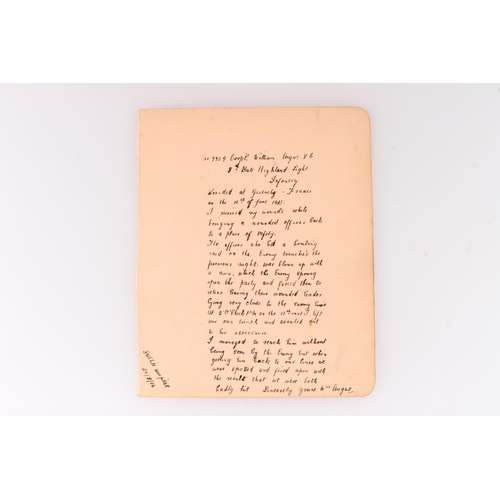 No 7709 Corpl William Angus V.C
8th Batt Highland Light
Infantry
Wounded at Givenchy - France
on the 12th of June 1915.
I received my wounds while
bringing a wounded officer back
to a place of safety.
The officer who led a bombing
raid on the Enemy trenches the
previous night, was blown up with
a mine, which the Enemy sprung
upon the party and forced them to
retire leaving their wounded leader
lying very close to the enemy lines.
At 2 O'Clock P.M on the 12th inst I left
our own trench and crawled out
to his assistance.
I managed to reach him without
being seen by the Enemy but when
getting him back to our lines we
were spotted and fired upon with
the result that we were both
badly hit Sincerely yours Wm Angus
Hospital